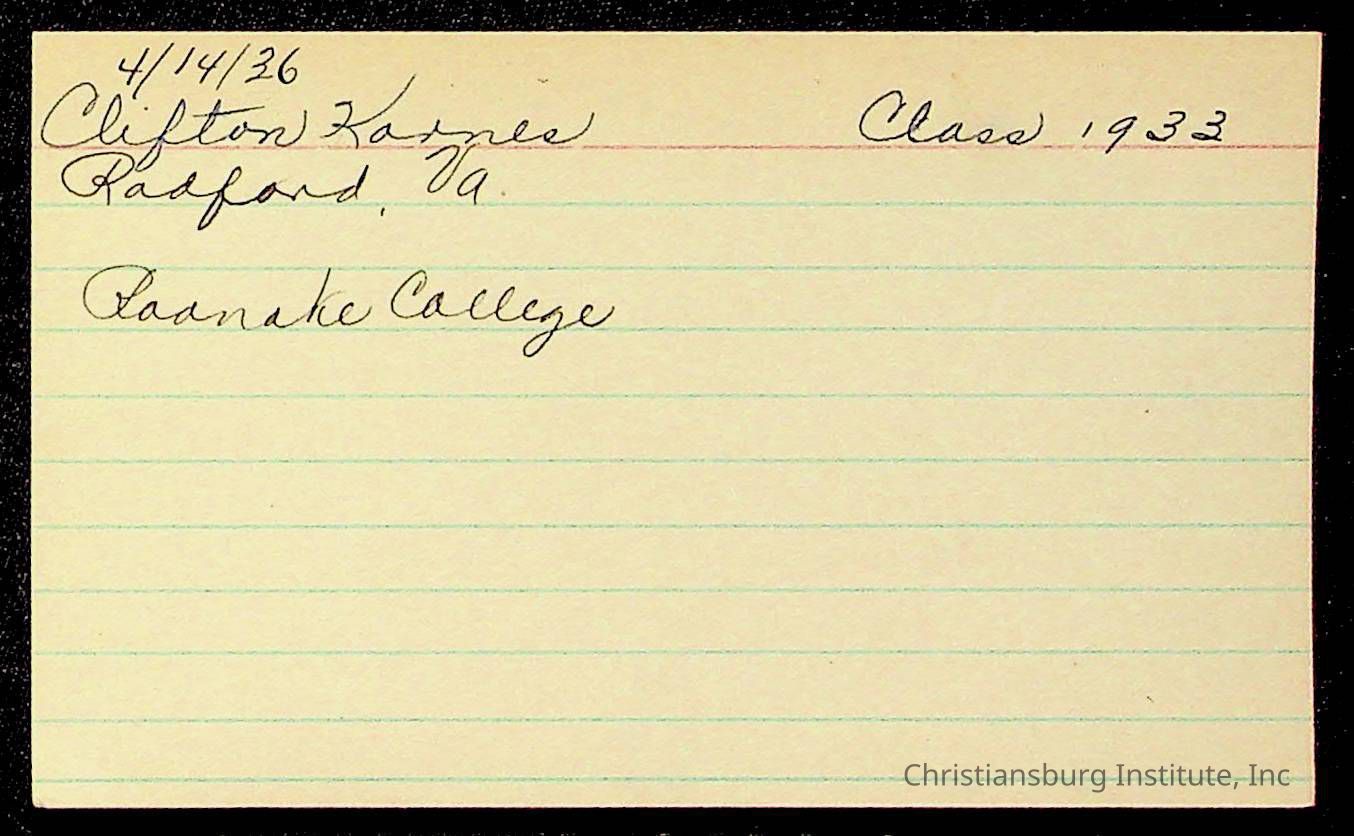 4/14/36
Clifton Karnes Class 1933
Radford, Va.
Roanoke College
Christiansburg Institute, Inc